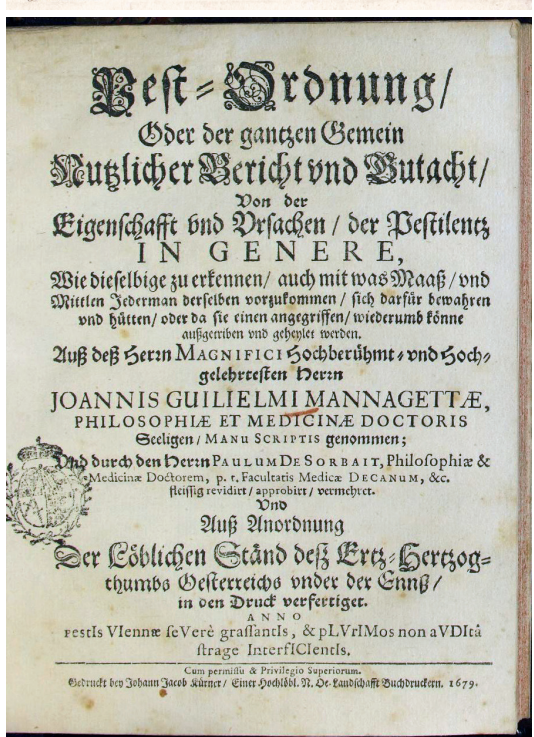 Pest-Ordnung/
Oder der gantzen Gemein
Nutzlicher Bericht vnd Gutacht/
Von der
Eigenschafft vnd Vrsachen / der Pestilentz
IN GENERE,
Wie dieselbige zu erkennen/ auch mit was Maaß/ vnd
Mittlen Jederman derselben vorzukommen / sich darfür bewahren
vnd hütten/ oder da sie einen angegriffen/ wiederumb könne
außgetriben vnd geheylet werden.
Auß deß Herrn MAGNIFICI Hochberühmt- vnd Hoch-
gelehrtesten Herrn
JOANNIS GUILIELMI MANNAGETTÆ,
PHILOSOPHIÆ ET MEDICINÆ DOCTORIS
Seeligen / MANU SCRIPTIS genommen;
Vnd durch den Herrn PAULUM DE SORBAIT, Philosophiæ &
Medicinæ Doctorem, p. t. Facultatis Medicæ DECANUM, &c.
fleissig revidirt / approbirt / vermehret.
Vnd
Auß Anordnung
Der Löblichen Ständ deß Ertz-Hertzog-
thumbs Oesterreichs vnder der Ennß/
in den Druck verfertiget.
ANNO
PestIs VIennæ seVerè grassantIs, & pLVrIMos non aVDItâ
strage InterfICIentIs.
Cum permissu & Privilegio Superiorum.
Gedruckt bey Johann Jacob Kürner / Einer Hochlöbl. N. Oe. Landschafft Buchdruckern. 1679.